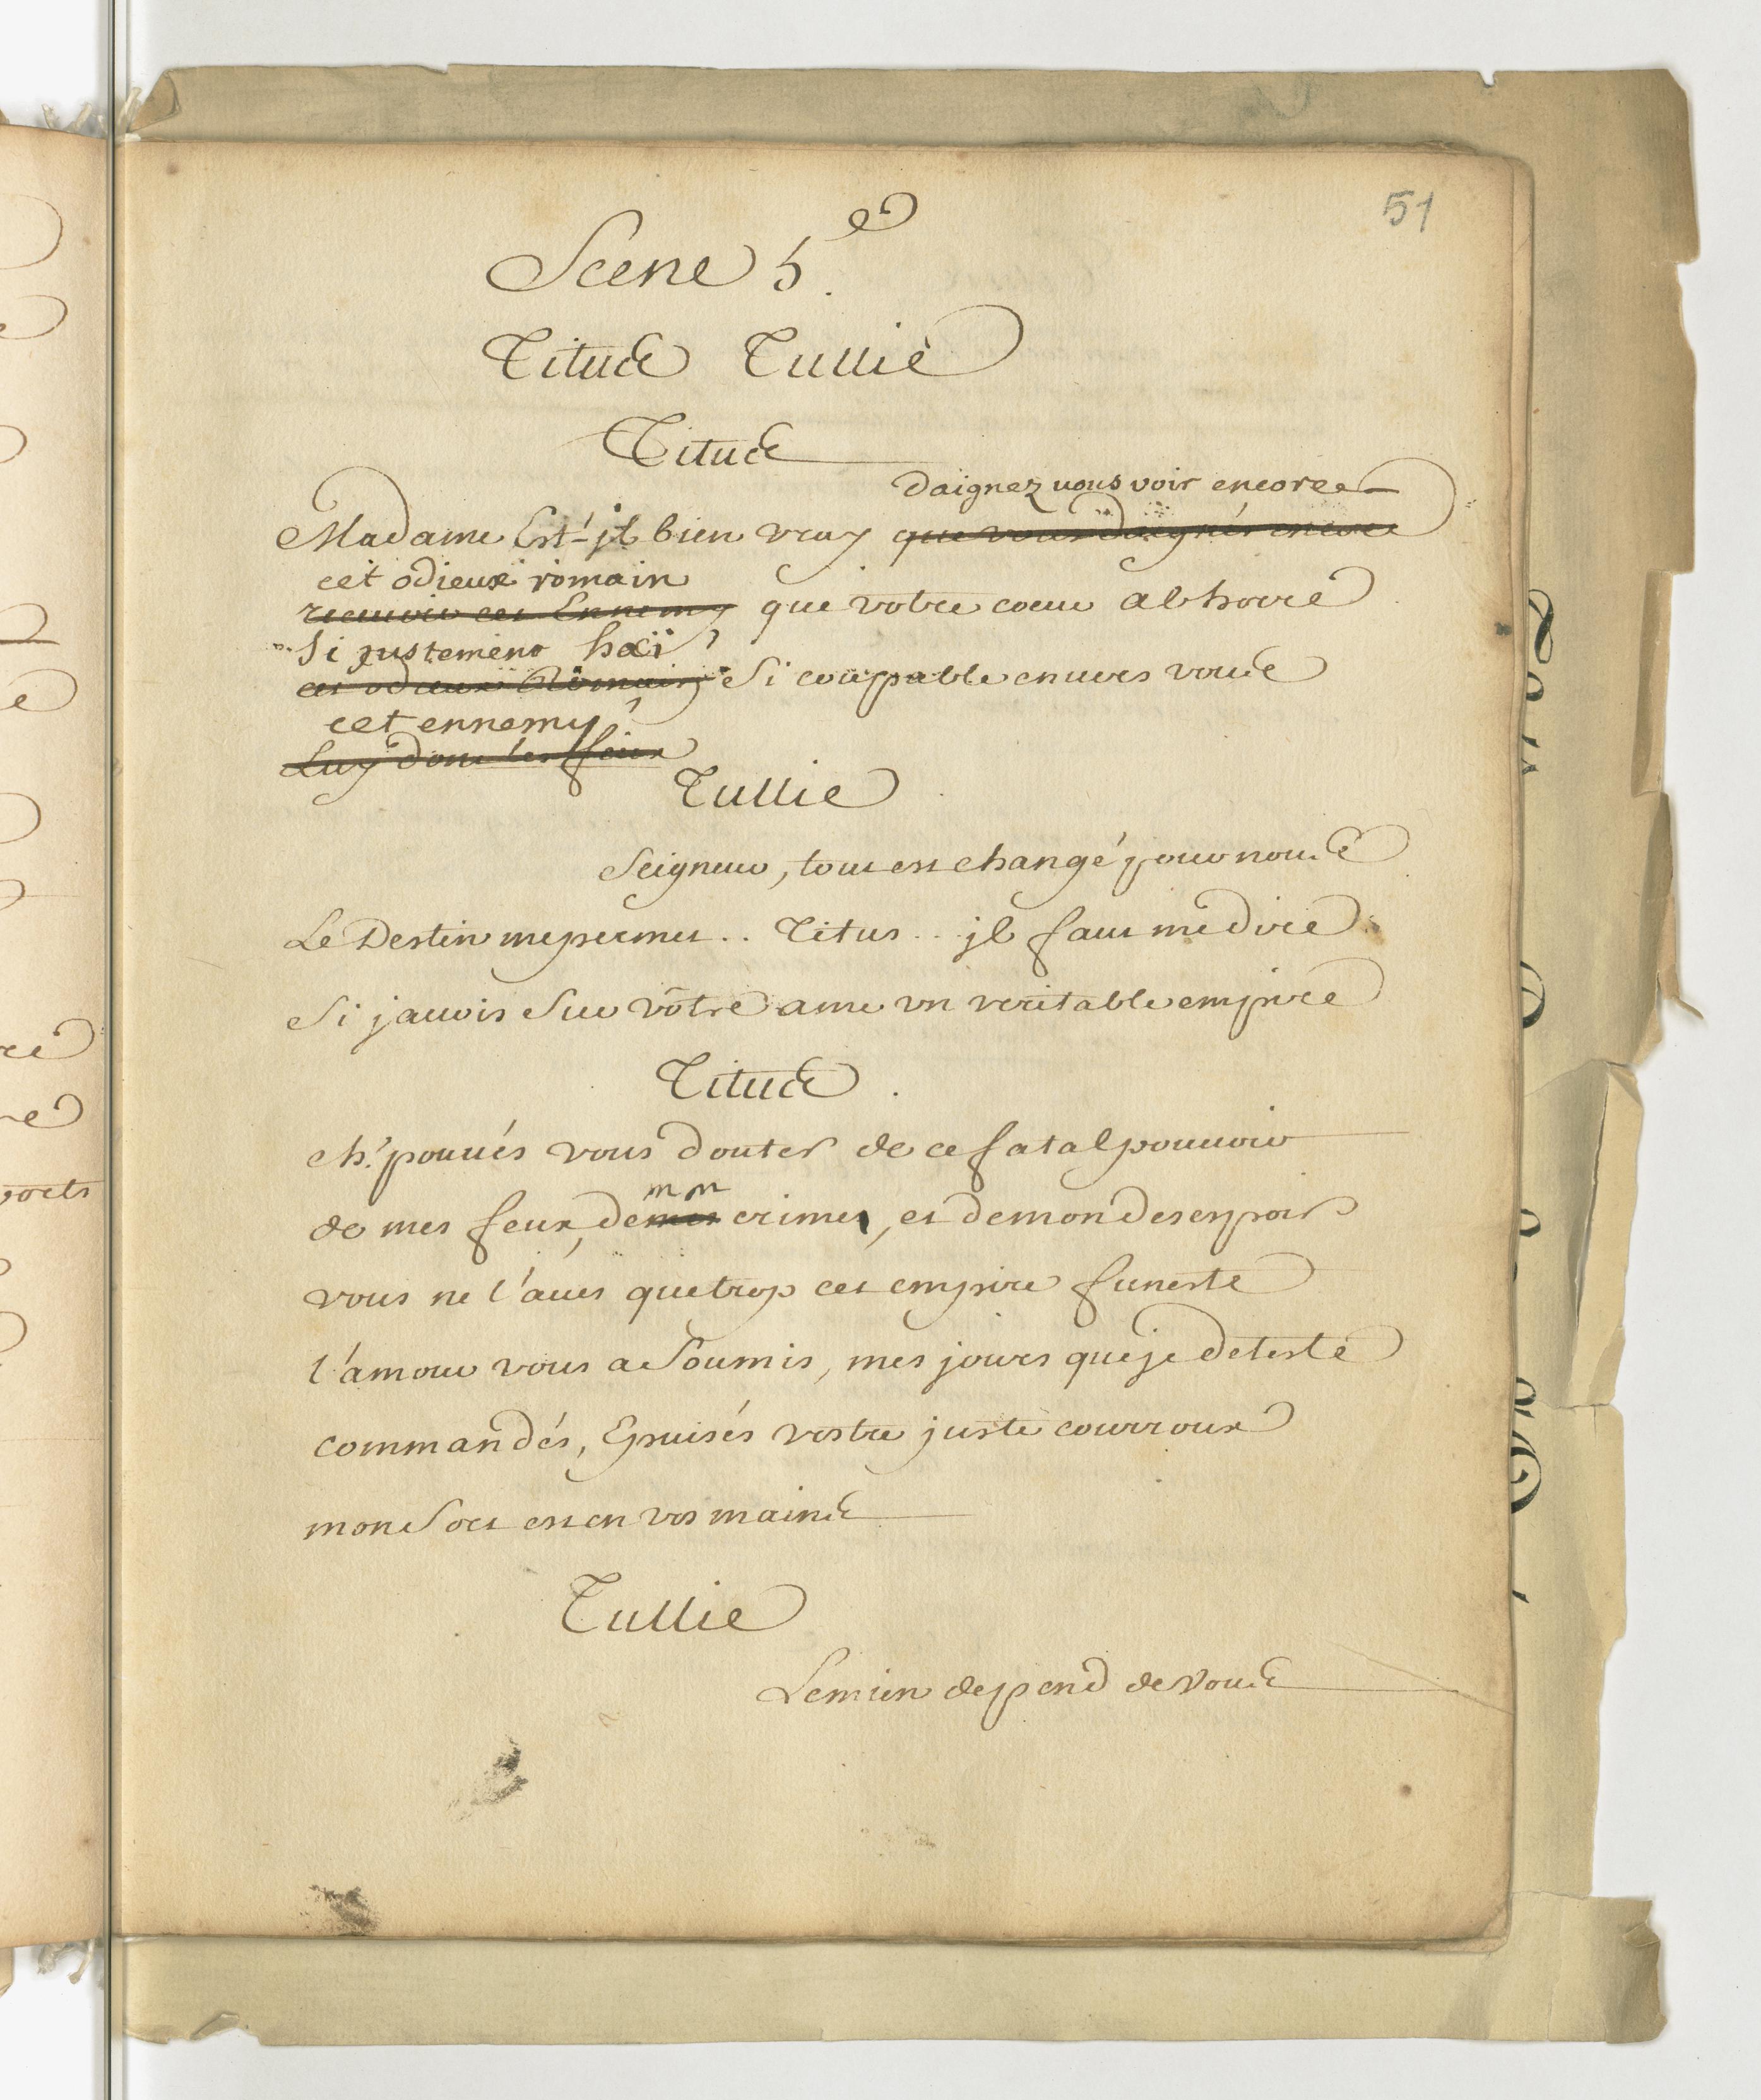 51
Scene 5e.
Titus Tullie
Titus
daignez vous voir encore
Madame Est-jl bien vray que vous daignés encore
cet odieux romain
recevoir cet Ennemy que votre coeur abhorre
Si justement haï,
cet odieux Romain, Si coupable envers vous
cet ennemy,
Luy dont les feux
Tullie
Seigneur, tout est changé pour nous
Le Destin me permet .. Titus .. jl faut me dire
Si j'avois Sur vôtre ame un veritable empire
Titus.
eh! pouués vous douter de ce fatal pouuoir
mon
de mes feux, de mes crimes, et de mon desespoir
vous ne l'aués que trop cet empire funeste
l'amour vous a Soumis, mes jours que je deteste
commandés, Epuisés vostre juste courroux
mon Sort est en vos mains
Tullie
Le mien depend de Vous